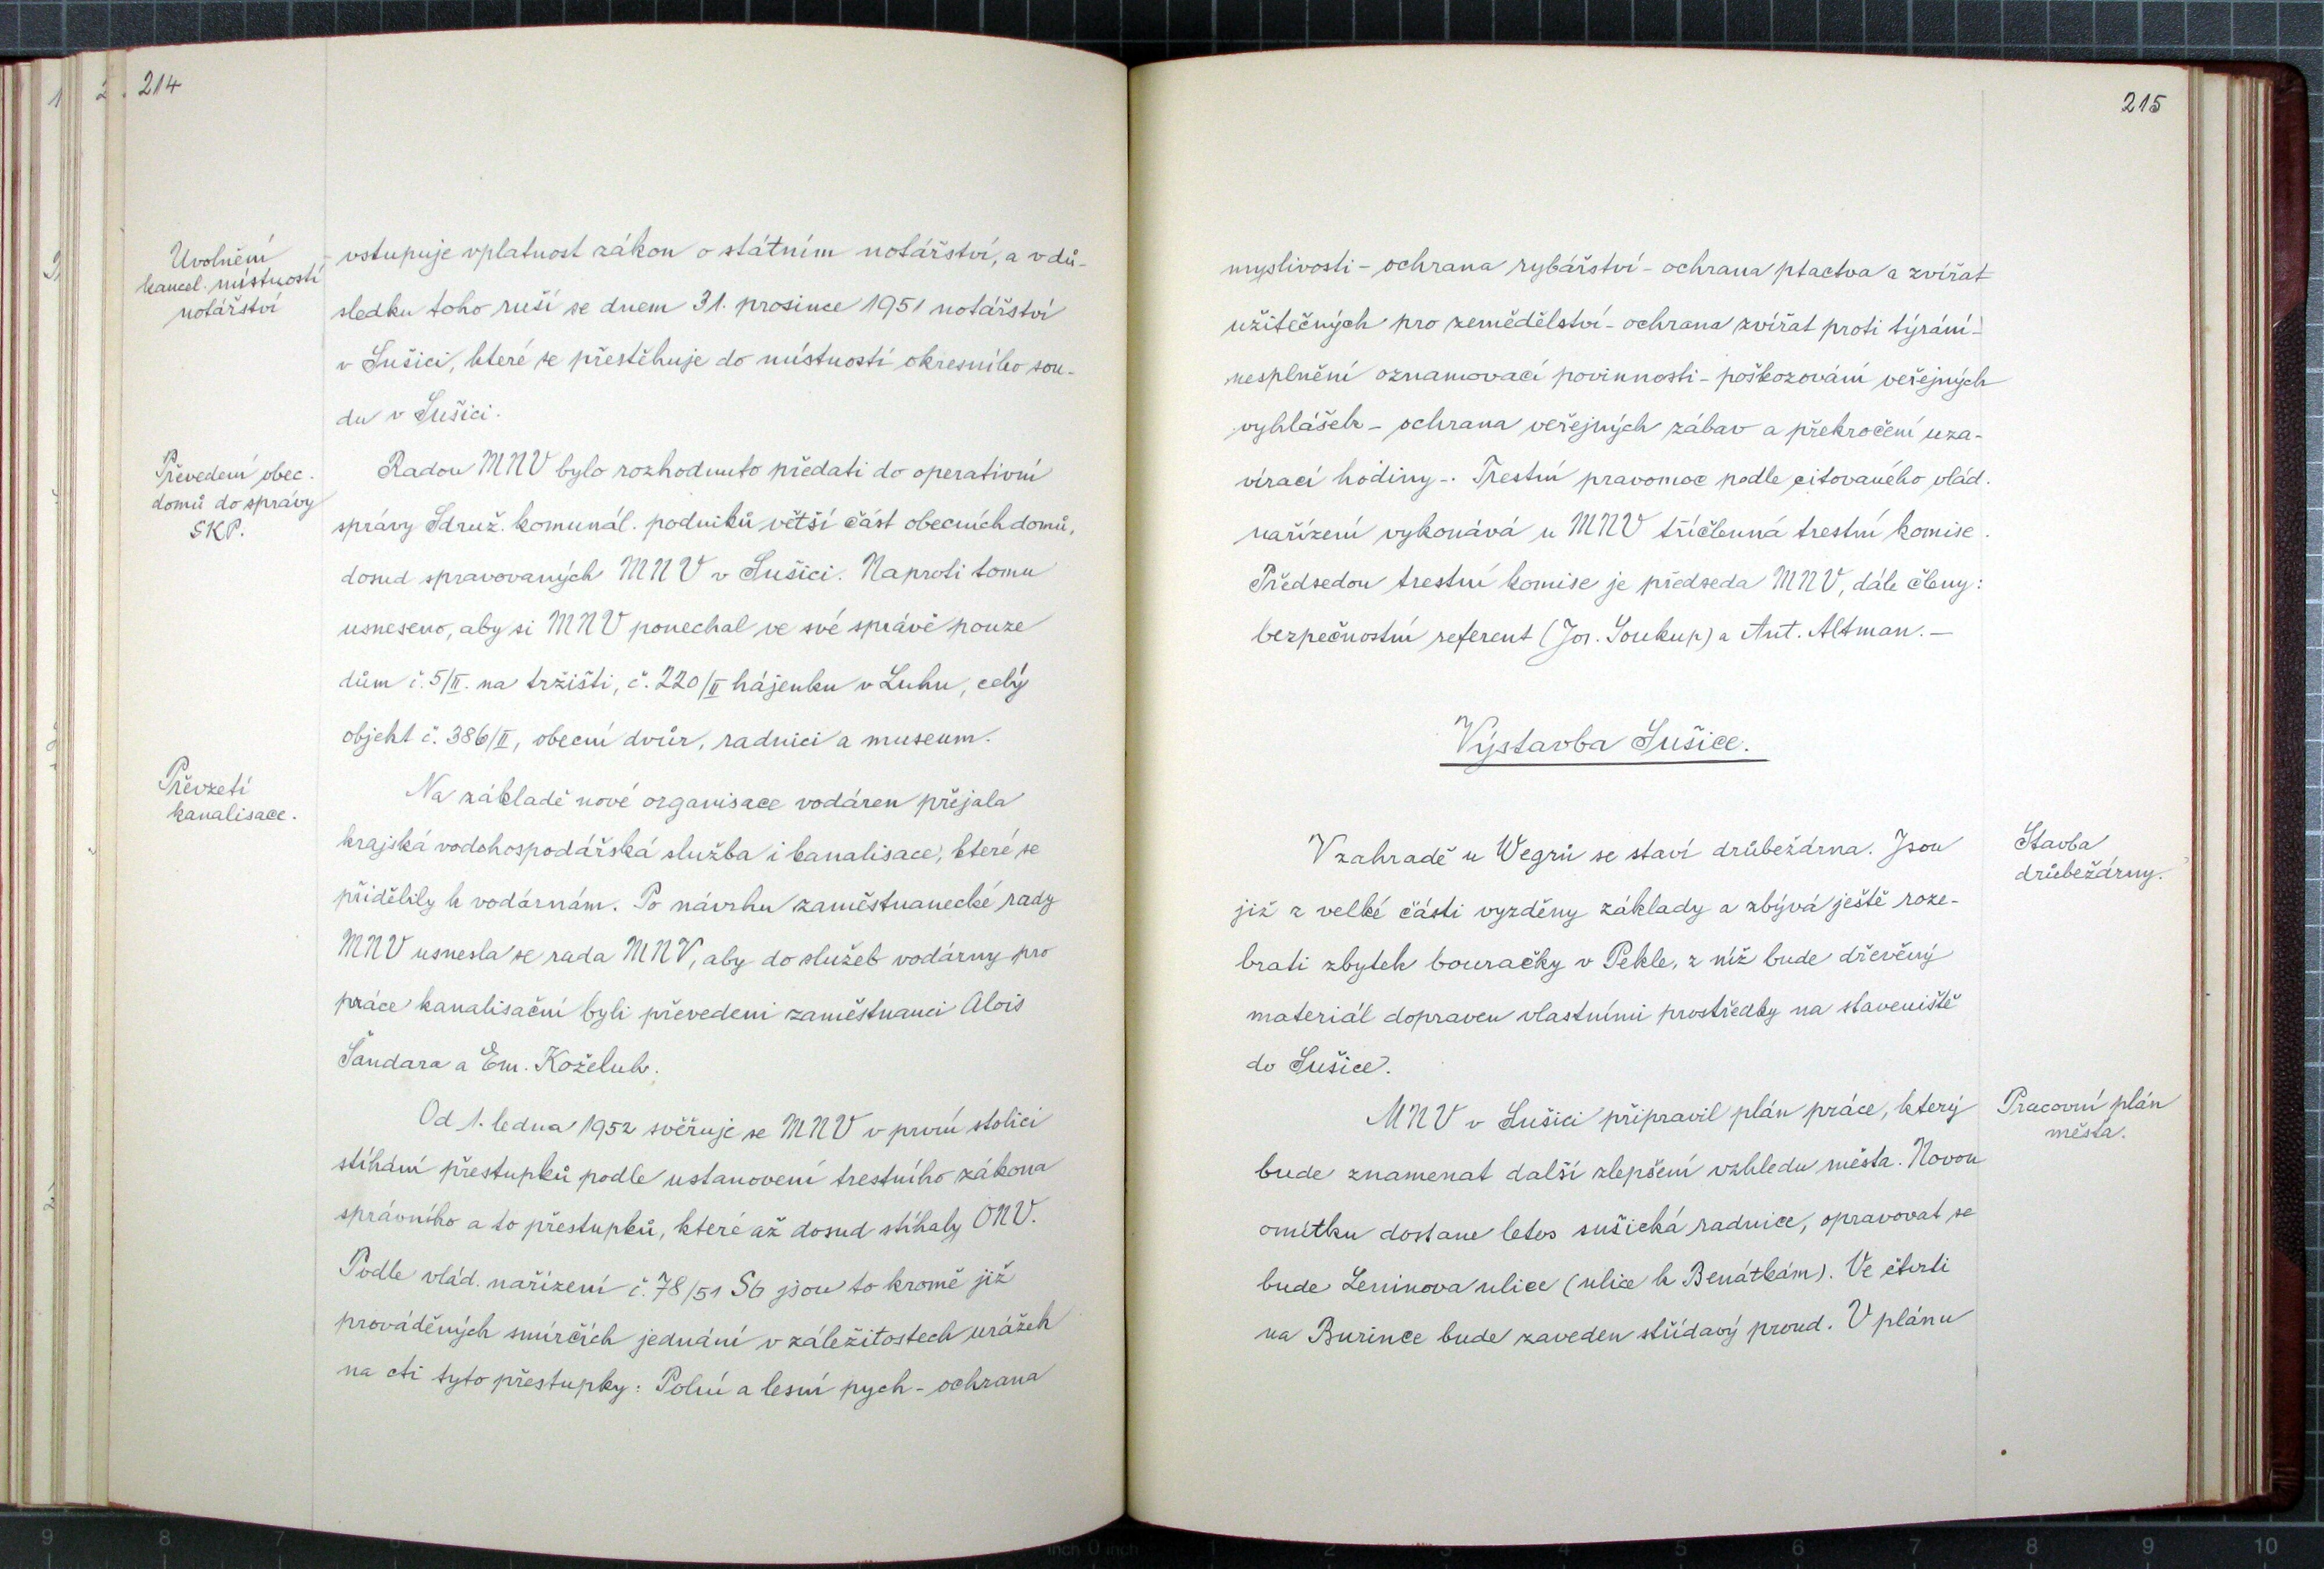 214
Uvolnění
kancel. místností
notářství
vstupuje v platnost zákon o státním notářství, a v dů-
sledku toho ruší se dnem 31. prosince 1951 notářství
v Sušici, které se přestěhuje do místností okresního sou-
du v Sušici.
Převedení obec.
domů do správy
SKP.
Radou MNV bylo rozhodnuto předati do operativní
správy Sdruž. komunál. podniků větší část obecních domů,
dosud spravovaných MNV v Sušici. Naproti tomu
usneseno, aby si MNV ponechal ve své správě pouze
dům č. 5/II. na tržišti, č. 220/II hájenku v Luhu, celý
objekt č. 386/II, obecní dvůr, radnici a museum.
Převzetí
kanalisace.
Na základě nové organisace vodáren přejala
krajská vodohospodářská služba i kanalisace, které se
přidělily k vodárnám. Po návrhu zaměstnanecké rady
MNV usnesla se rada MNV, aby do služeb vodárny pro
práce kanalisační byli převedeni zaměstnanci Alois
Šandara a Em. Koželuh.
Od 1. ledna 1952 svěřuje se MNV v první stolici
stíhání přestupků podle ustanovení trestního zákona
správního a to přestupků, které až dosud stíhaly ONV.
Podle vlád. nařízení č. 78/51 Sb jsou to kromě již
prováděných smírčích jednání v záležitostech urážek
na cti tyto přestupky: Polní a lesní pych - ochrana
215
myslivosti - ochrana rybářství - ochrana ptactva a zvířat
užitečných pro zemědělství - ochrana zvířat proti týrání -
nesplnění oznamovací povinnosti - poškozování veřejných
vyhlášek - ochrana veřejných zábav a překročení uza-
vírací hodiny -. Trestní pravomoc podle citovaného vlád.
nařízení vykonává u MNV tříčlenná trestní komise.
Předsedou trestní komise je předseda MNV, dále členy:
bezpečnostní referent (Jos. Soukup) a Ant. Altman. —
Výstavba Sušice.
V zahradě u Wegrů se staví drůbežárna. Jsou
již z velké části vyzděny základy a zbývá ještě roze-
brati zbytek bouračky v Pekle, z níž bude dřevěný
materiál dopraven vlastními prostředky na staveniště
do Sušice.
Stavba
drůbežárny.
MNV v Sušici připravil plán práce, který
bude znamenat další zlepšení vzhledu města. Novou
omítku dostane letos sušická radnice, opravovat se
bude Leninova ulice (ulice k Benátkám). Ve čtvrti
na Burince bude zaveden střídavý proud. V plánu
Pracovní plán
města.
9 8 7
inch 0 inch 1 2 3 4 5 6 7 8 9 10